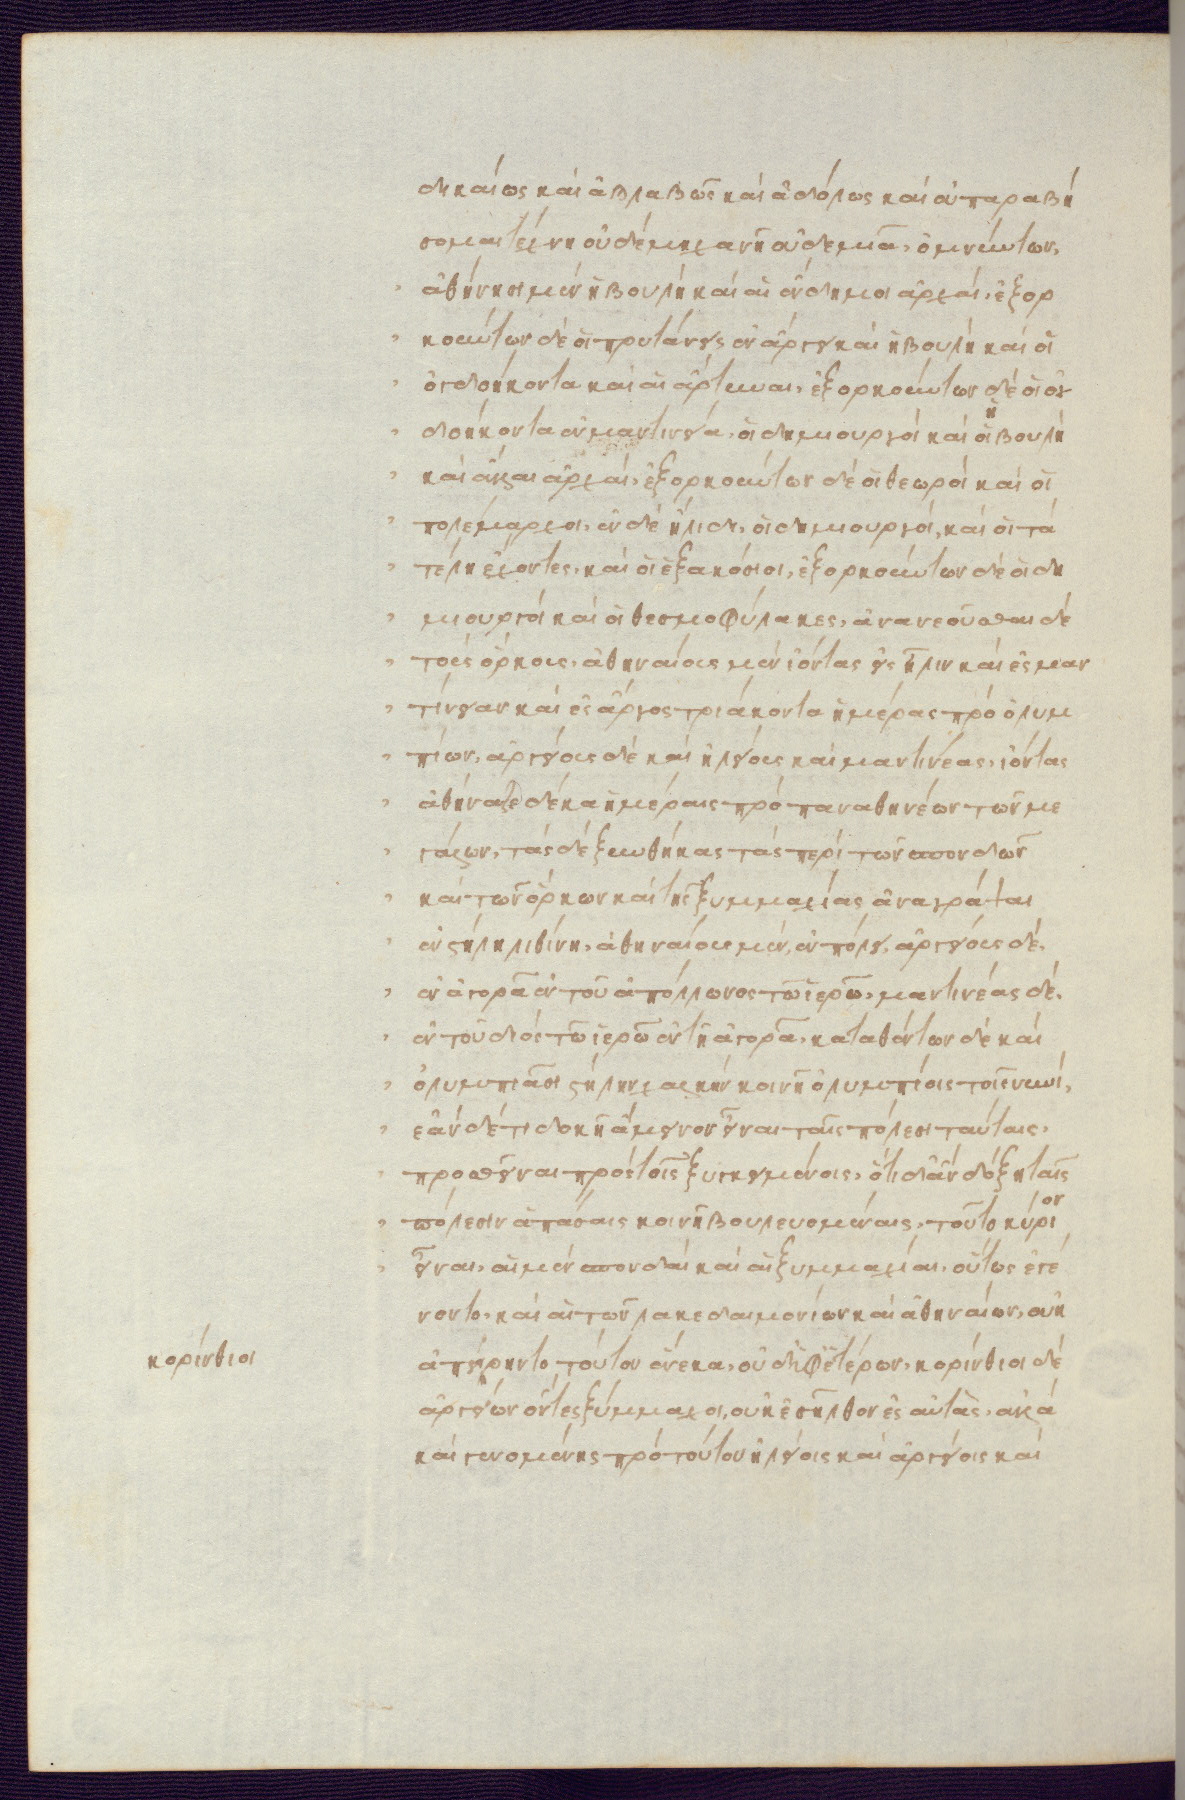 δικαίως καὶ ἀβλαβῶς καὶ ἀδόλως καὶ οὐ παραβή
σομαι τέχνη οὐδὲ μηχανῆ οὐδεμιᾶ, ὀμνύντων,
ἀθήνησι μὲν ἡ βουλὴ καὶ αἱ ἔνδημοι ἀρχαί, ἐξορ
κούντων δὲ οἱ πρυτάνεις, ἐν ἄργει καὶ ἡ βουλὴ καὶ οἱ
ὀγδοήκοντα καὶ αἱ ἄρτυναι, ἐξορκούντων δὲ οἱ ὀγ
δοήκοντα ἐν μαντινεία, οἱ δημιουργοὶ καὶ οἱ ἡ βουλὴ
καὶ ἄλλαι ἀρχαί, ἐξορκούντων δὲ οἱ θεωροὶ καὶ οἱ
πολέμαρχοι, ἐν δὲ ἤλιδι, οἱ δημιουργοί, καὶ οἱ τὰ
τέλη ἔχοντες, καὶ οἱ ἑξακόσιοι, ἐξορκούντων δὲ οἱ δη
μιουργοὶ καὶ οἱ θεσμοφύλακες, ἀνανεοῦσθαι δὲ
τοὺς ὅρκους, ἀθηναίους μὲν ἰόντας εἰς ἦλιν καὶ ἐς μαν
τίνειαν καὶ ἐς ἄργος τριάκοντα ἡμέρας πρὸ ὀλυμ
πίων, ἀργείους δὲ καὶ ἠλείους καὶ μαντινέας, ἰόντας
ἀθήναζε δέκα ἡμέραις πρὸ παναθηνέων τῶν με
γάλων, τὰς δὲ ξυνθήκας τὰς περὶ τῶν σπονδῶν
καὶ τῶν ὅρκων καὶ τῆς ξυμμαχίας ἀναγράψαι
ἐν στήλη λιθίνη, ἀθηναίους μὲν, ἐν πόλει, ἀργείους δὲ,
ἐν ἀγορᾶ ἐν τοῦ ἀπόλλωνος τῶ ἱερῶ, μαντινέας δὲ,
ἐν τοῦ διὸς τῶ ἱερῶ ἐν τῆ ἀγορᾶ, καταθέντων δὲ καὶ
ὀλυμπιᾶσι στήλην χαλκὴν κοινῆ ὀλυμπίοις τοῖς νυνί,
ἐὰν δέ τι δοκῆ ἄμεινον εἶναι ταῖς πόλεσι ταύταις,
προσθεῖναι πρὸς τοῖς ξυγκειμένοις, ὅτι δ' ἂν δόξη ταῖς
πόλεσιν ἁπάσαις κοινῆ βουλευομέναις, τοῦτο κύριον
εἶναι, αἱ μὲν σπονδαὶ καὶ αἱ ξυμμαχίαι, οὕτως ἐγέ
νοντο, καὶ αἱ τῶν λακεδαιμονίων καὶ ἀθηναίων, οὐκ
κορίνθιοι
ἀπείρηντο τούτου ἕνεκα, οὐδ' ἑτέρων, κορίνθιοι δὲ
ἀργείων ὄντες ξύμμαχοι, οὐκ ἐσῆλθον ἐς αὐτὰς, ἀλλὰ
καὶ γενομένης πρὸ τούτου ἠλείοις καὶ ἀργείοις καὶ